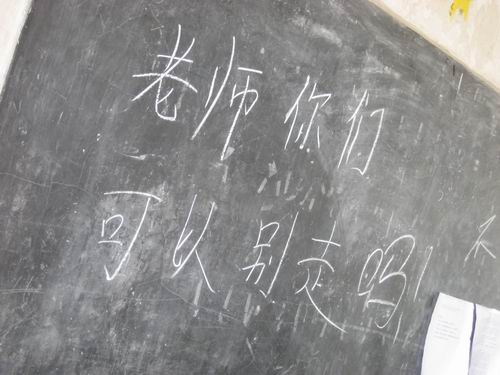 老师你们
可以别走吗!
不